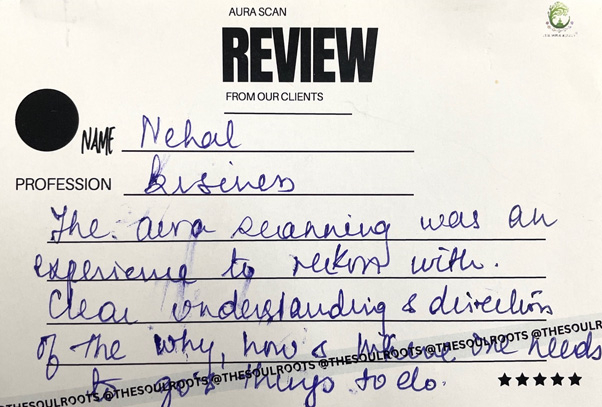 AURA SCAN
REVIEW
FROM OUR CLIENTS
NAME Nehal
PROFESSION Business
The aura scanning was an
experience to reckon with.
Clear understanding & direction
of the why, how & one needs
@THESOULROOTS @THESOULROOTS @THESOULROOTS @THESOULROOTS @THESOUL
to things to do.